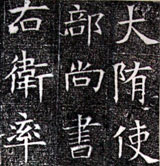 大隋使
部尚書
右衛率